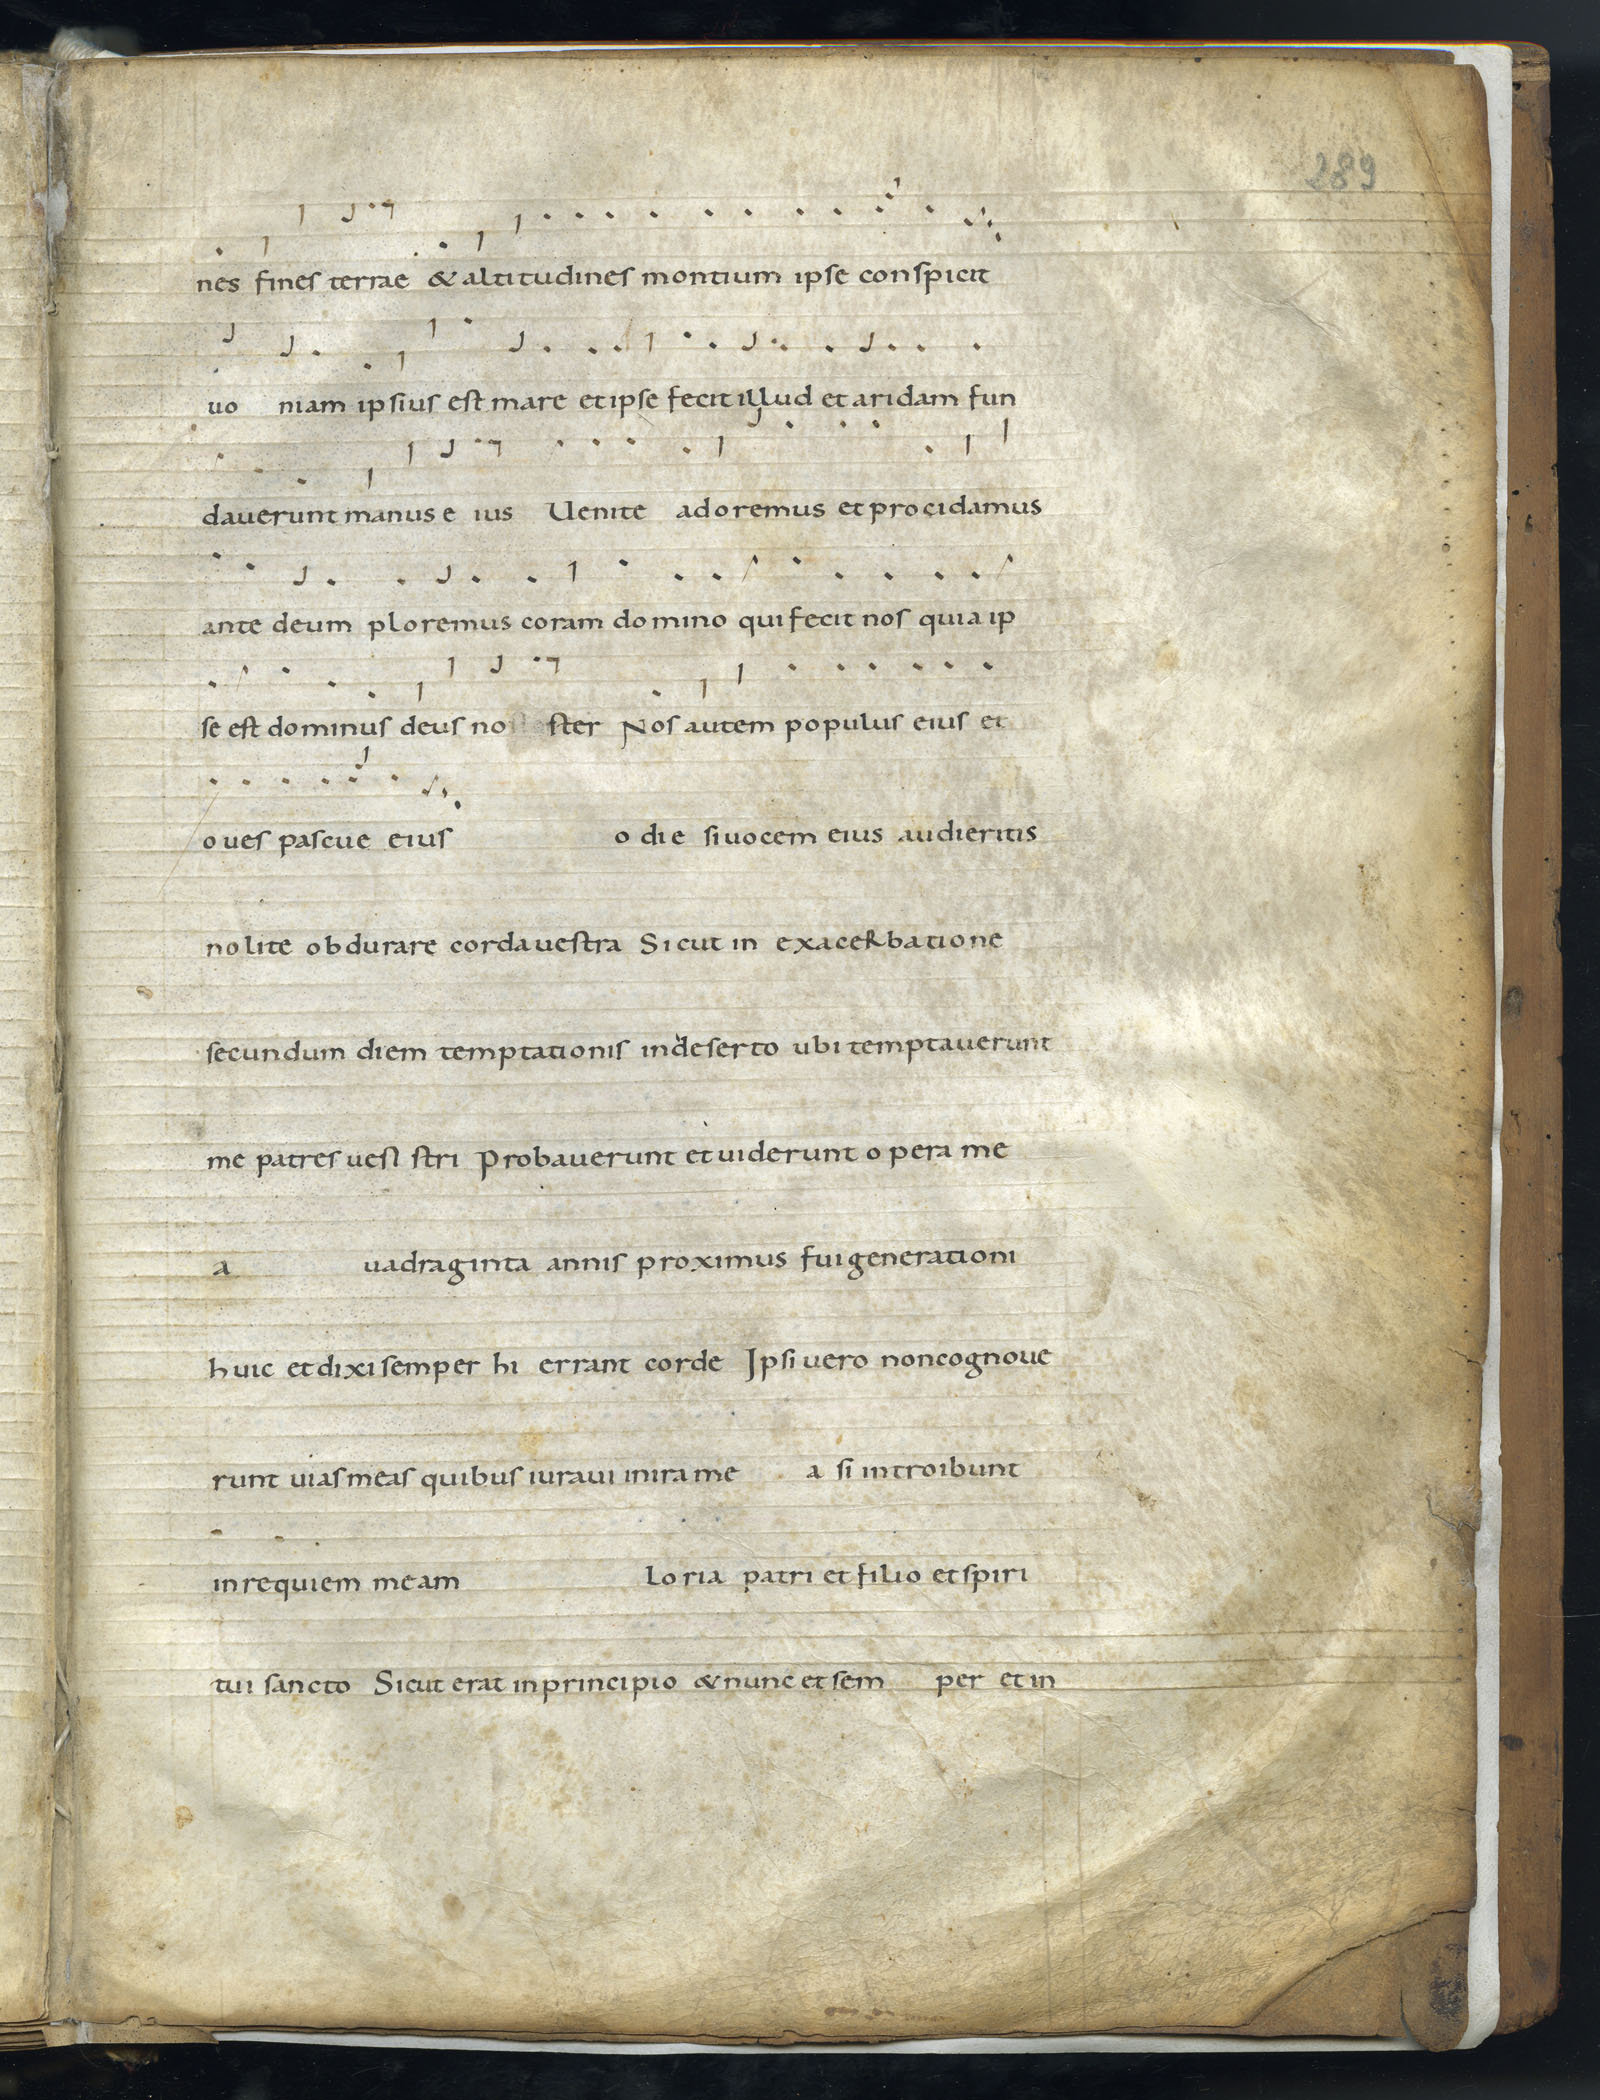 289
nes fines terrae & altitudines montium ipse conspicit
uo niam ipsius est mare et ipse fecit illud et aridam fun
dauerunt manus e ius Uenite adoremus et procidamus
ante deum ploremus coram domino qui fecit nos quia ip
se est dominus deus no ster Nos autem populus eius et
oues pascue eius odie si uocem eius audieritis
nolite obdurare corda uestra Sicut in exacerbatione
secundum diem temptationis in deserto ubi temptauerunt
me patres uest stri Probauerunt et uiderunt opera me
a uadraginta annis proximus fui generationi
huic et dixi semper hi errant corde Ipsi uero non cognoue
runt uias meas quibus iuraui in ira me a si introibunt
in requiem meam loria patri et filio et spiri
tui sancto Sicut erat in principio & nunc et sem per et in